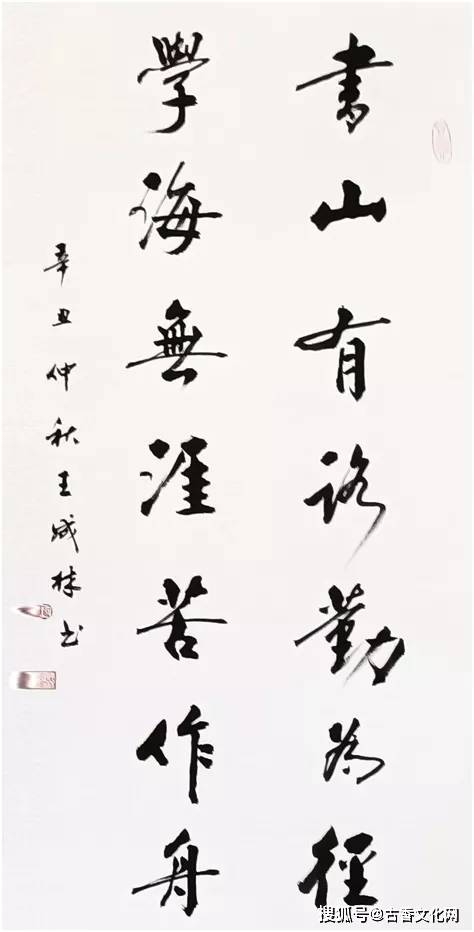 書山有路勤為徑
學海無涯苦作舟
辛丑仲秋王成林书
搜狐号@古香文化网